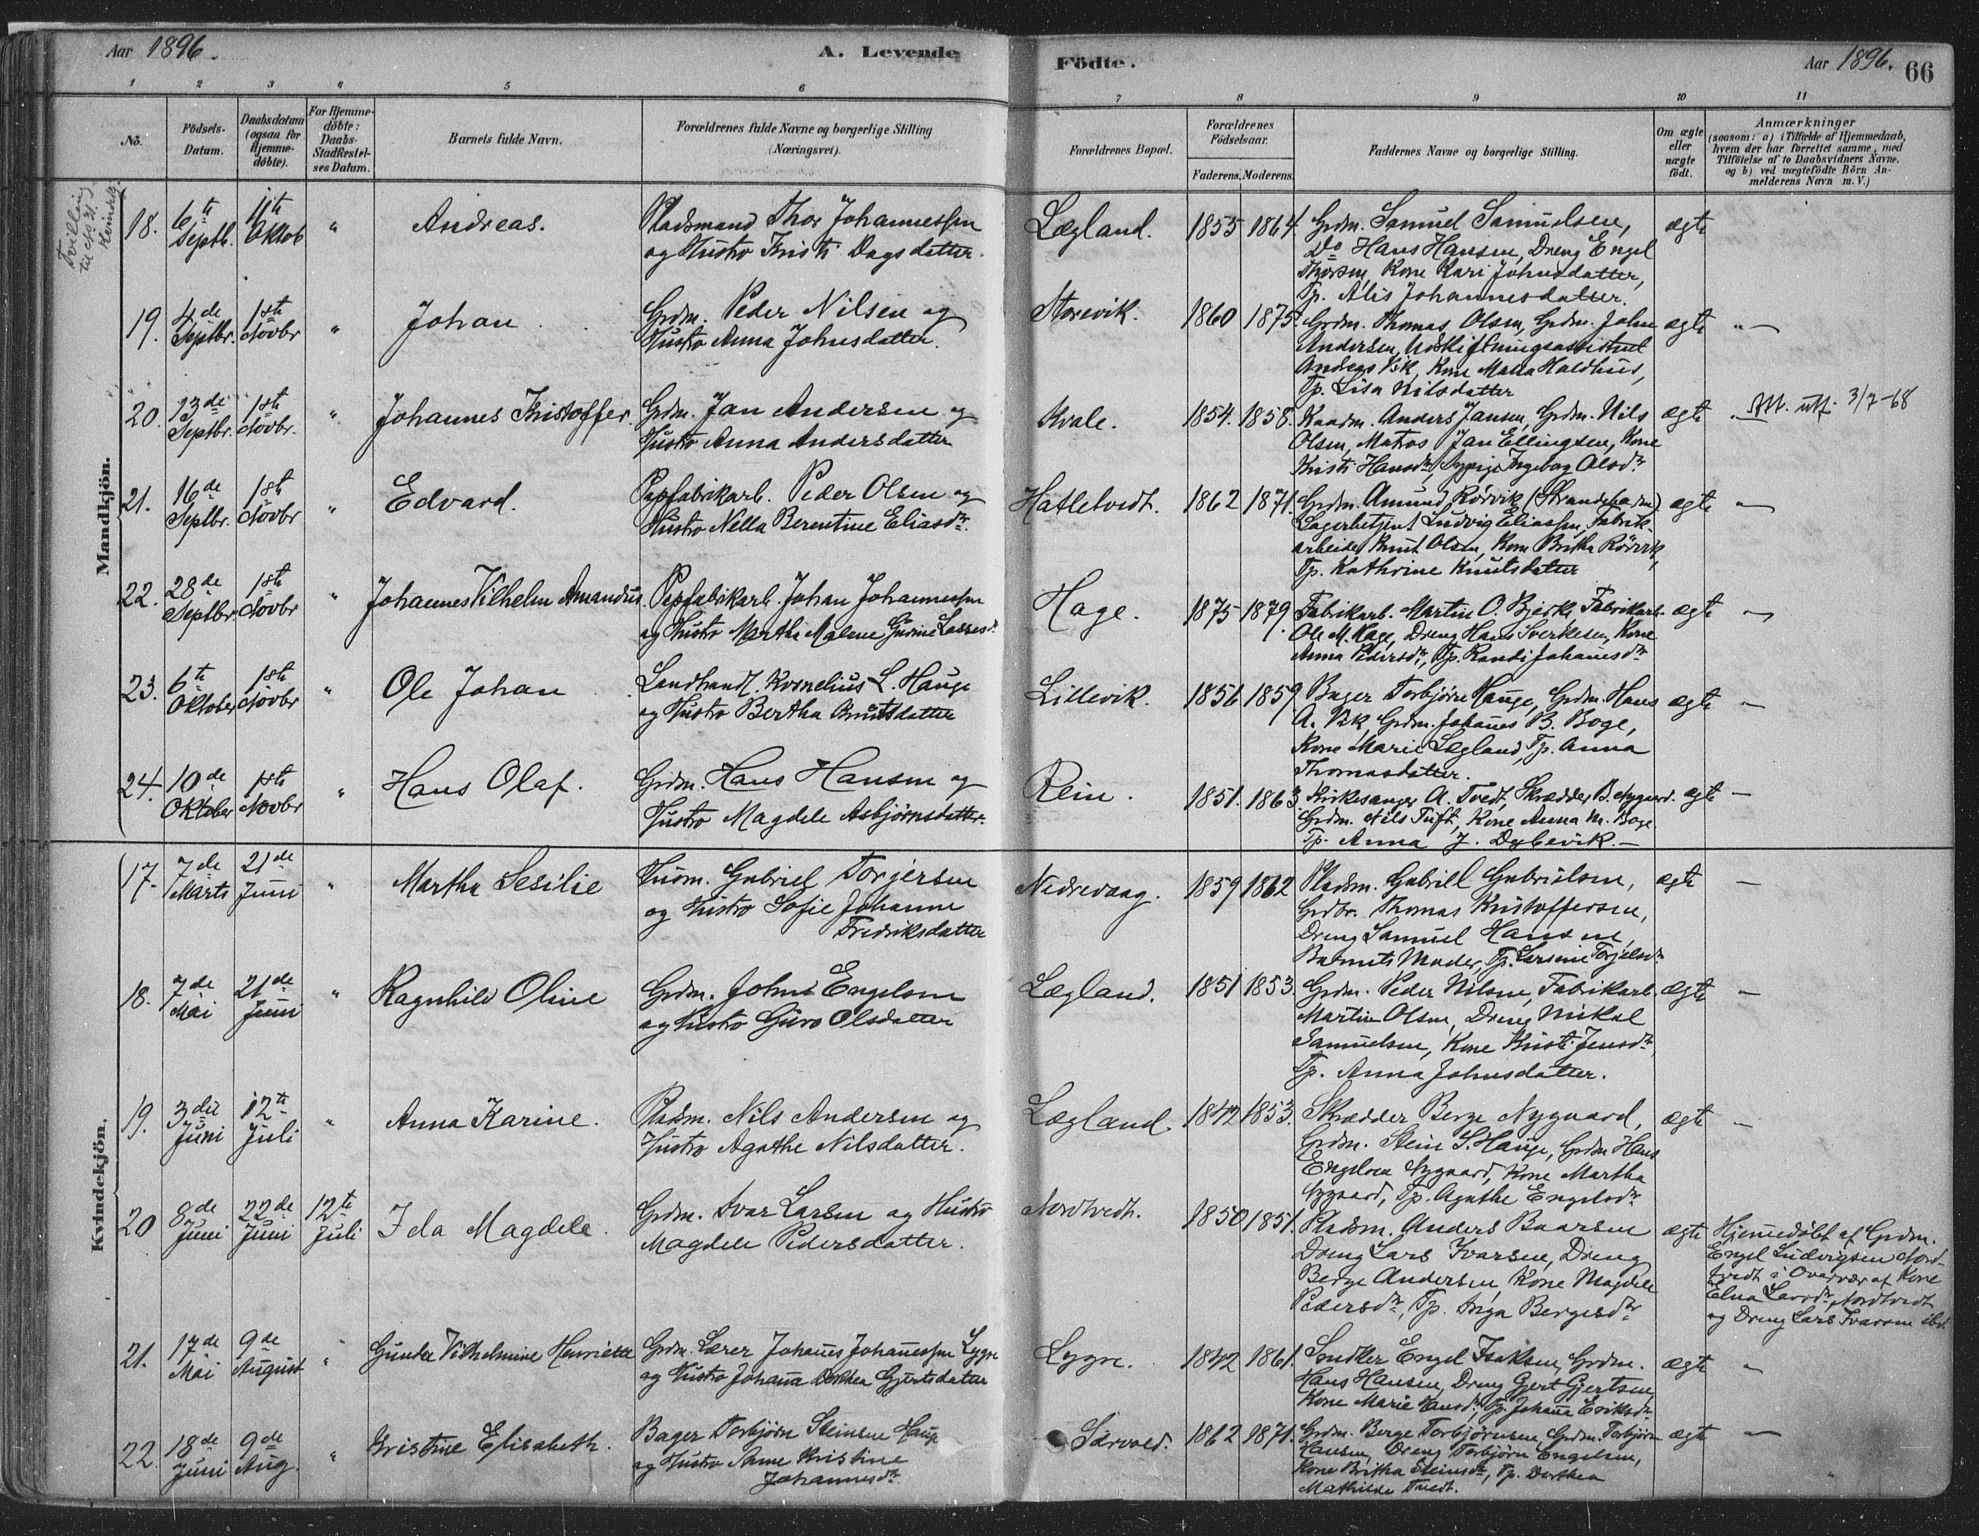 Aar 1896.
A. Levende
Födte.
Aar 1896.
66
1 2 3 4 5 6 7 8 9 10 11
No.
Födsels-
Datum.
Daabsdatum
(ogsaa for
Hjemme-
døbte).
For Hjemme-
døbte:
Daabs-
Stadfæstel-
ses Datum.
Barnets fulde Navn.
Forældrenes fulde Navne og borgerlige Stilling
(Næringsvei).
Forældrenes Bopæl.
Forældrenes
Födselsaar.
Faderens. Moderens.
Faddernes Navne og borgerlige Stilling.
Om ægte
eller
uægte
födt.
Anmærkninger
(saasom: a) i Tilfælde af Hjemmedaab,
hvem der har forrettet samme, med
Tilføielse af to Daabsvidners Navne.
og b) ved uægtefödte Börn An-
melderens Navn m. V.)
Mandkjön.
Tvilling
til No 31
Kvindekj.
18. 6te Septb. 11te Oktob " Andreas. Pladsmand Thor Johannessen
og Hustro Kristi Dagsdatter. Lægland. 1855 1864. Grdm. Samuel Samuelsen, ægte
Do Hans Hansen, Dreng Engel
Thorsen, Kone Kari Johnsdatter,
Tp. Alis Johannesdatter.
19. 4de Septbr. 1ste Novbr " Johan Grdm. Peder Nilsen og
Hustro Anna Johnsdatter. Storevik. 1860 1875. Grdm. Thomas Olsen, Grdm. John ægte "—
Andersen, Udskiftningsassistent
Andreas Vik, Kone Malla Haldhus,
Tp. Lisa Nilsdatter
20. 13de Septbr. 1ste Novbr. " Johannes Kristoffer. Grdm. Jan Andersen og
Hustro Anna Andersdatter Kvale. 1854. 1858. Kaarm. Anders Jansen, Grdm. Nils ægte 3/7-68
Olsen, Matros Jan Ellingsen, Kone
Kristi Hansdr, Pige Ingeborg Olsdr
21. 16de Septbr. 1ste Novbr " Edvard. Papfabrikarb. Peder Olsen og
Hustro Nella Berentine Eliasdr. Hatletvedt. 1862 1871. Grdm. Amund Rörvik (Strandebarm) ægte —
Lagerbetjent Ludvig Eliassen, Fabrik-
arbeider Knut Olsen, Kone Britha Rörvik,
Tp. Kathrine Knutsdatter
22. 28de Septbr 1ste Novbr " Johannes Vilhelm Amandus Papfabrikarb. Johan Johannessen
og Hustro Martha Malene Gurine Lassesdr. Hage. 1875 1879. Fabrikarb. Martin O. Bjerke, Fabrikarb. ægte —
Ole M. Hage, Dreng Hans Sverkesen, Kone
Anna Pedersdr, Tp. Randi Johanesdr
23. 6te Oktober 1ste Novbr " Ole Johan Landhandl. Kornelius L. Hauge
og Hustro Bertha Knutsdatter Lillevik. 1856 1859. Bager Torbjörn Hauge, Grdm. Hans ægte —
A. Vik, Grdm. Johannes B. Boge,
Kone Marie Lægland, Tp. Anna
Thomasdatter.
24. 10de Oktober 1ste Novbr " Hans Olaf. Grdm. Hans Hansen og
Hustro Magdele Asbjörnsdatter. Rein. 1851. 1863. Kirkesanger A. Tvedt, Skrædder B. Nygaard. ægte —
Grdm. Nils Tuft, Kone Anna M. Boge
Tp. Anna J. Dybevik. —
Kvindekjön.
17. 7de Marts 21de Juni " Martha Sesilie Husm. Gabriel Torjersen
og Hustro Sofie Johanne
Fredriksdatter Nedrevaag. 1859 1862 Pladsm. Gabriel Gabrielsen, ægte —
Grdbr. Thomas Kristoffersen,
Dreng Samuel Hansen
Barnets Moder, Tp. Larsine Torjelsdr
18. 7de Mai 21de Juni " Ragnhild Oline Grdm. John Engelsen
og Hustro Guro Olsdatter Lægland. 1851 1853. Grdm. Peder Nilsen, Fabrikarb. ægte —
Martin Olsen, Dreng Mikal
Samuelsen, Kone Kristi Jensdr,
Tp. Anna Johnsdatter.
19. 3die Juni 12te Juli " Anna Karine. Pladsm. Nils Andersen og
Hustro Agathe Nilsdatter. Lægland 1842 1853. Skrædder Berge Nygaard, ægte —
Grdm. Stein S. Hauge, Grdm Hans
Engelsen Nygaard, Kone Martha
Nygaard, Tp. Agathe Engelsdr
20 8de Juni 22de Juni 12te Juli Ida Magdele. Grdm. Ivar Larsen og Hustro
Magdele Pedersdatter. Nordtvedt. 1850 1851. Pladsm. Anders Baarsen ægte Hjemmedöbt af Grdm.
Dreng Lars Ivarsen, Dreng Engel Ludvigsen Nord-
Berge Andersen, Kone Magdele tvedt i Overvær af Kone
Pedersdr, Tp. Inga Bergesdr Elna Larsdr Nordtvedt
og Dreng Lars Ivarsen ibd.
21. 17de Mai 9de August " Gunda Vilhelmine Henriette Grdm. Lærer Johanes Johanessen Lygre
og Hustro Johanna Dorthea Gjertsdatter Lygre. 1842 1861. Snedker Engel Isaksen, Grdm. ægte —
Hans Hansen, Dreng Gjert Gjertsen,
Kone Marie Hansdr, Tp. Johanne Eriksdr
22. 18de Juni 9de Aug. " Kristine Elisabeth. Bager Torbjörn Steinsen Hauge
og Hustro Anne Kristine
Johannesdr Sörvold. 1862 1871. Grdm. Berge Torbjörnsen, Grdm. Torbjörn ægte —
Hansen, Dreng Torbjörn Engelsen,
Kone Britha Steinsdr, Tp. Dorthea
Mathilde Tvedt.